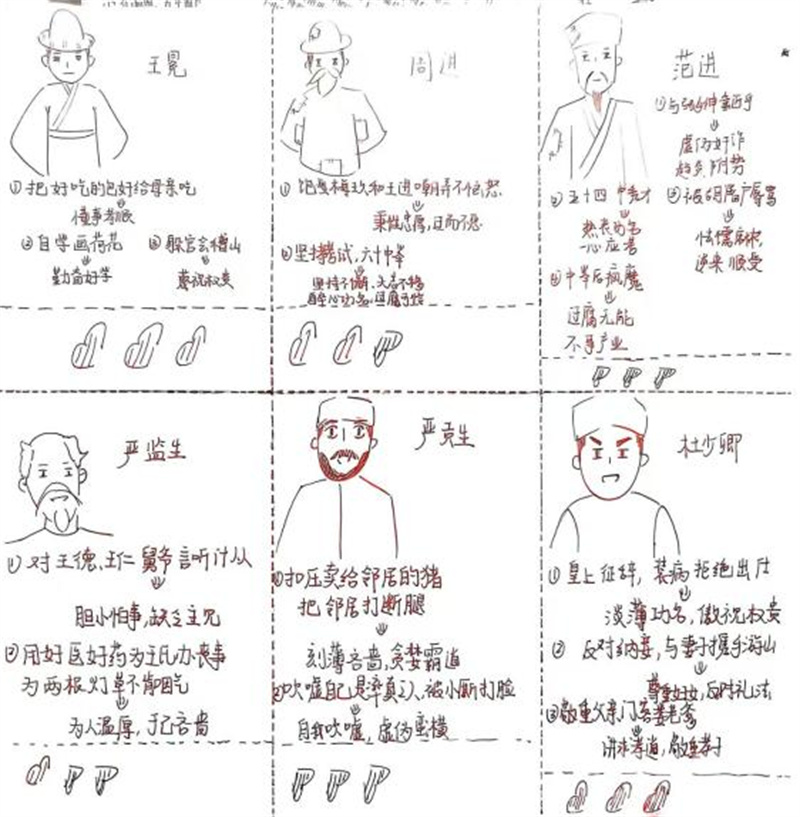 王冕
①把好吃的包好给母亲吃
懂事孝顺
②自学画荷花
勤奋好学
③躲官去稽山
蔑视权贵
周进
①饱受梅玖和王进嘲弄不恼怒
秉性忠厚,
②坚持考试,六十中举
坚持不懈,
范进
虚伪奸诈
趋炎附势
②五十四中秀才
热衷功名
一心应考
③被胡屠户辱骂
怯懦麻木
逆来顺受
④中举后疯魔
迂腐无能
不事产业
严监生
①对王德、王仁舅爷言听计从
胆小怕事,缺乏主见
②用好医好药为王氏办丧事
为两根灯草不肯咽气
为人温厚,于己吝啬
严贡生
①扣压卖给邻居的猪
把邻居打断腿
刻薄吝啬,贪婪霸道
②吹嘘自己是率真之人、被小厮打脸
自我吹嘘,虚伪蛮横
杜少卿
①皇上征辟,装病拒绝出仕
淡薄功名,傲视权贵
② 反对纳妾,与妻子携手游山
尊重妇女,反对礼法
③敬重父亲门客娄老爹
讲求孝道,敬重孝子